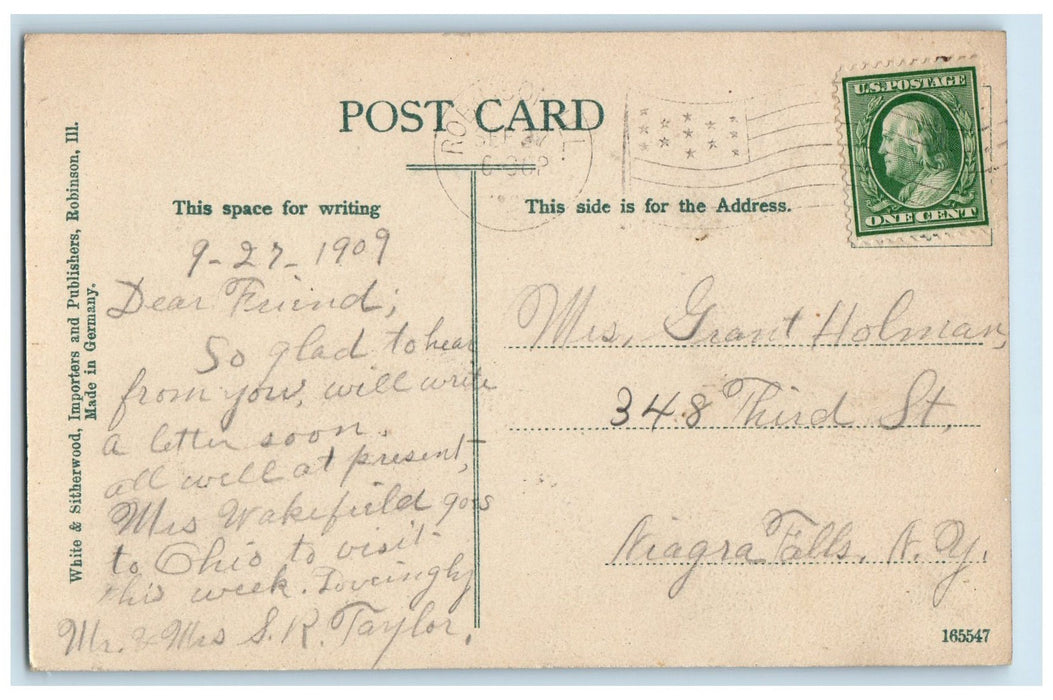 POST CARD
SEP 27
U.S. POSTAGE
ONE CENT
This space for writing
This side is for the Address.
White & Sitherwood, Importers and Publishers, Robinson, Ill.
Made in Germany.
9-27-1909
Dear Friend;
So glad to hear
from you, will write
a letter soon.
all well at present,
Mrs Wakefield goes
to Ohio to visit
this week. Loveingly
Mr. & Mrs S. R. Taylor.
Mrs. Grant Holman,
348 Third St,
Niagra Falls, N. Y.
165547